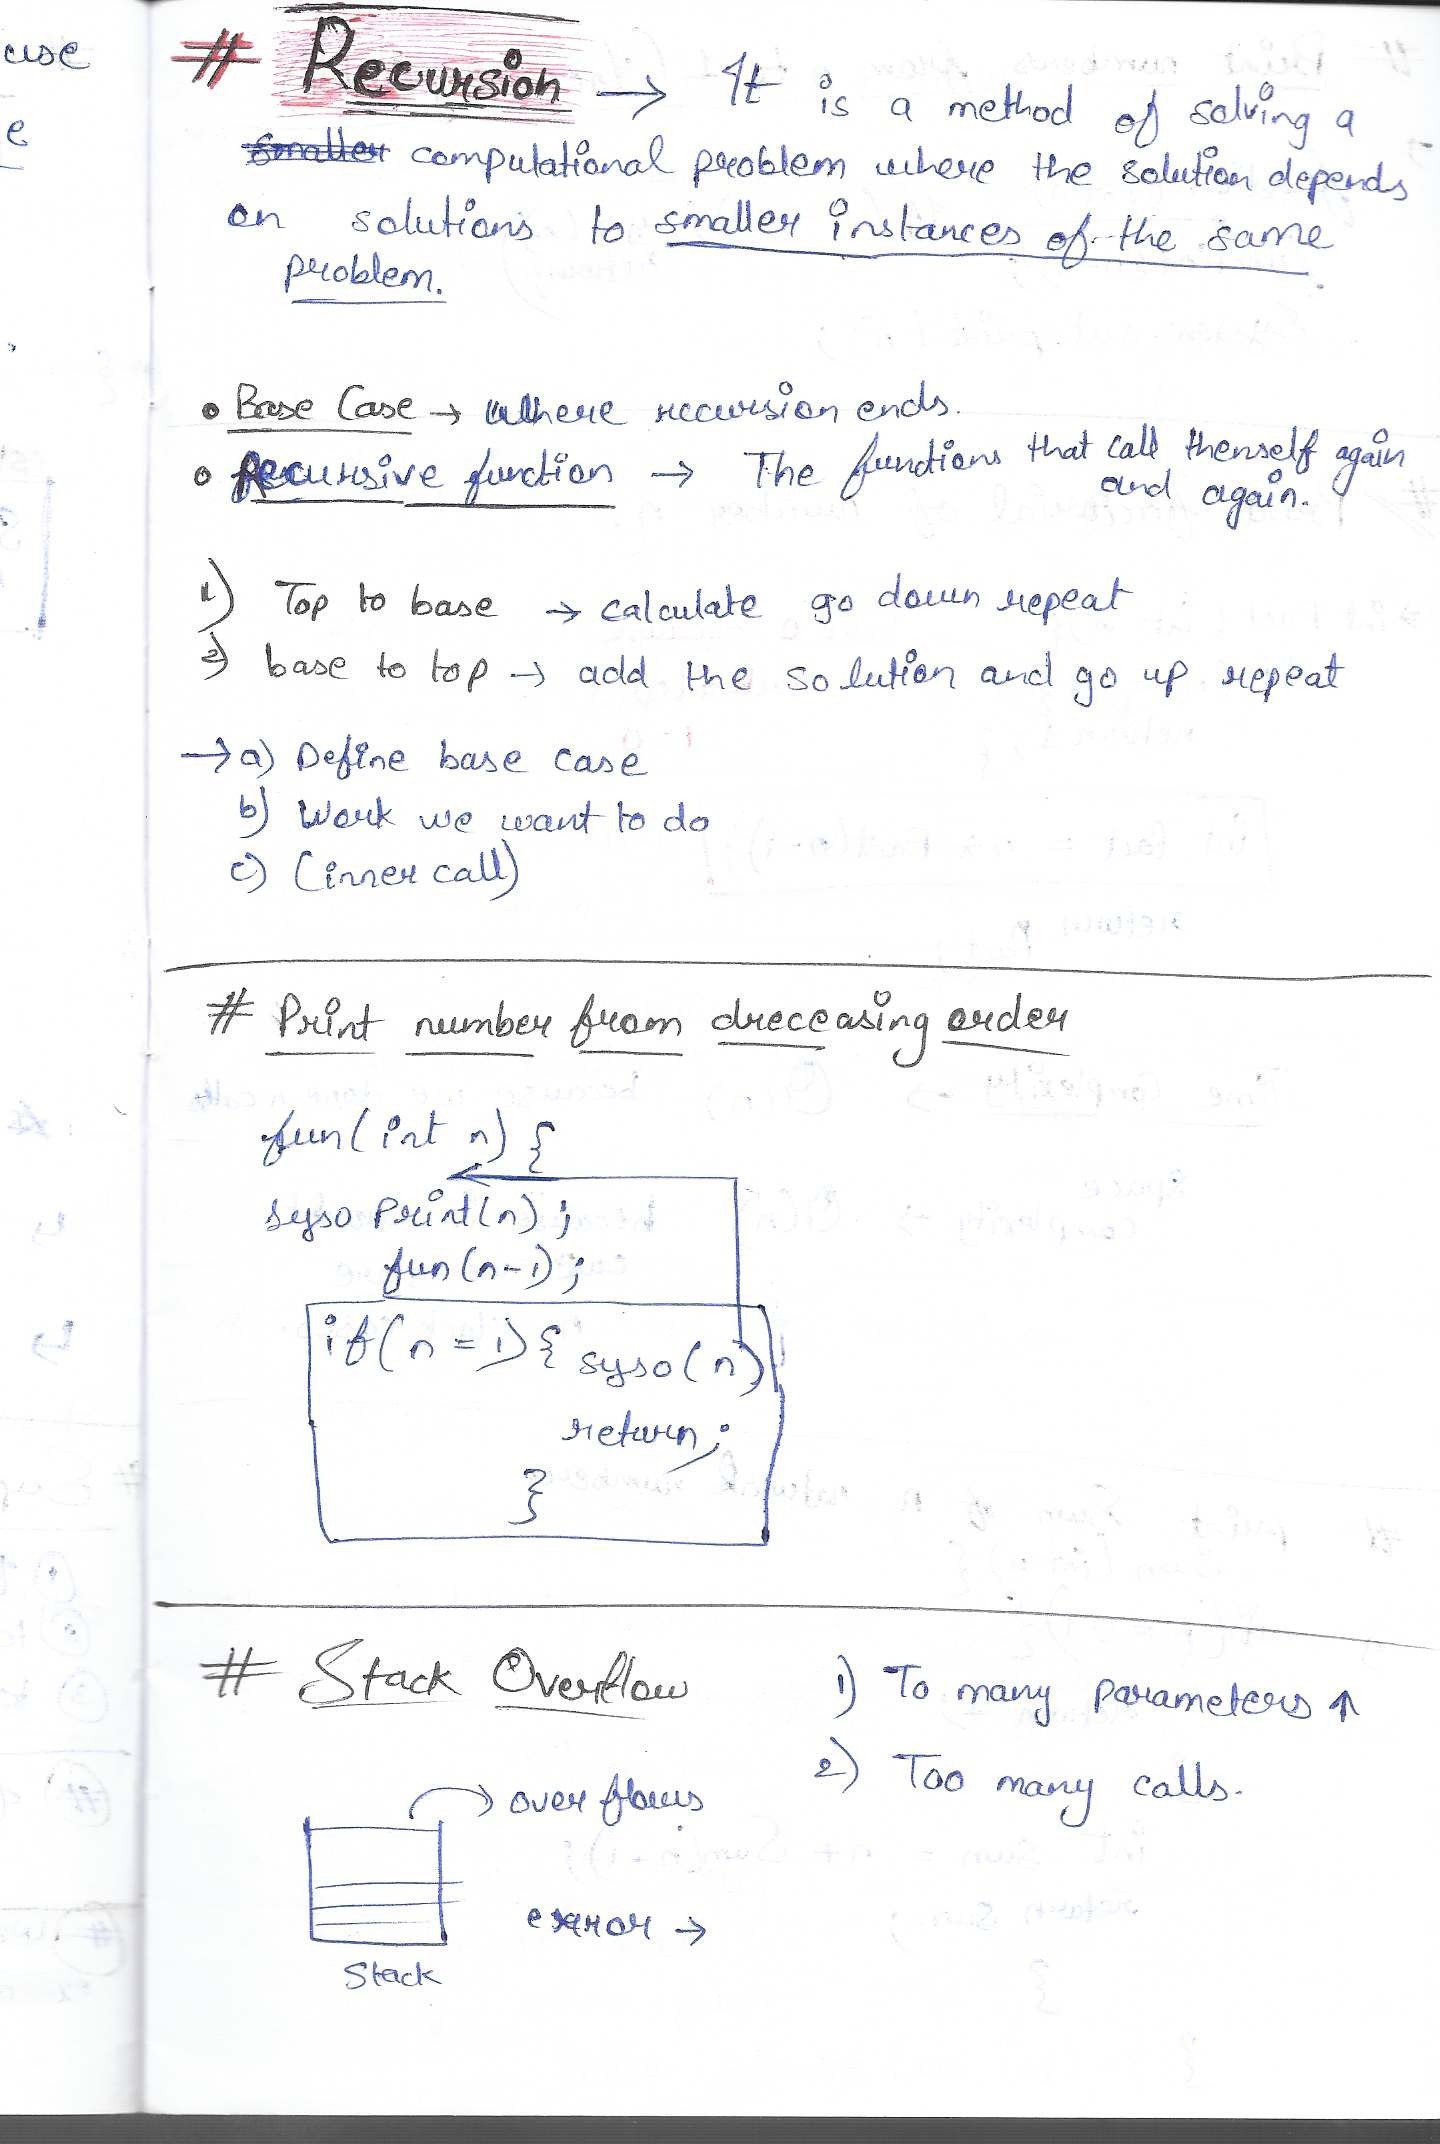 use
e
# Recursion → It is a method of solving a
computational problem where the solution depends
on solutions to smaller instances of the same
problem.
• Base Case → Where recursion ends.
• Recursive function → The functions that call themself again
and again.
1) Top to base → calculate go down repeat
2) base to top → add the solution and go up repeat
→ a) Define base case
b) Work we want to do
c) (inner call)
# Print number from dreceasing order
fun(int n) {
syso Print(n);
fun(n-1);
if(n = 1) { syso(n)
return;
}
# Stack Overflow
1) To many parameters ↑
2) Too many calls.
overflows
error →
Stack